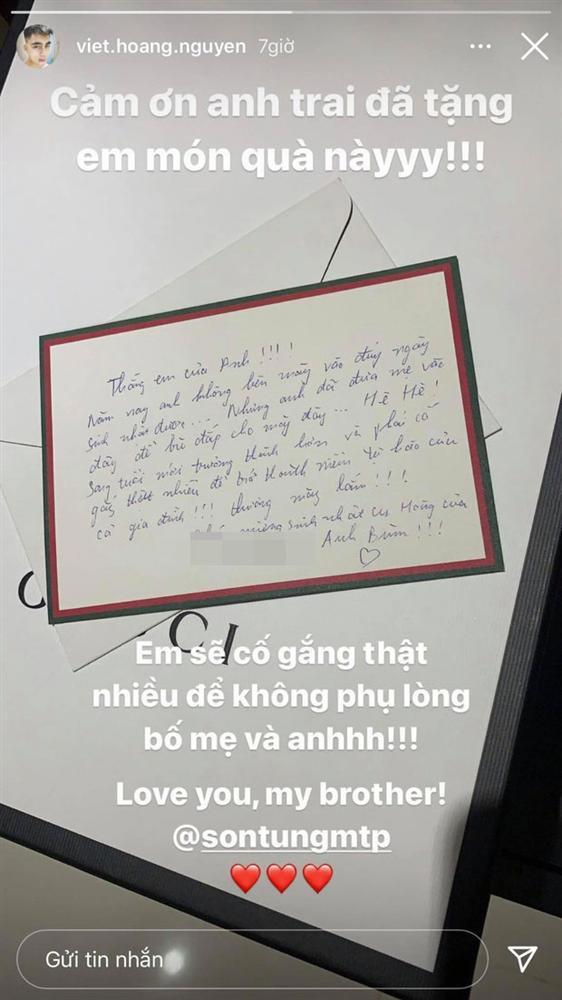 viet.hoang.nguyen 7giờ
Cảm ơn anh trai đã tặng
em món quà nàyyy!!!
Thằng em của Anh !!!!
Năm nay anh không bên mày vào đúng ngày
sinh nhật được... Nhưng anh đã đưa mẹ vào
đây để bù đắp cho mày đây... Hê Hê!
Sang tuổi mới trưởng thành hơn và phải cố
gắng thật nhiều để trở thành niềm tự hào của
cả gia đình!!! thương mày lắm!!!
sinh nhật cu Hoàng của
Anh Bùm!!!
CI
Em sẽ cố gắng thật
nhiều để không phụ lòng
bố mẹ và anhhh!!!
Love you, my brother!
@sontungmtp
❤️❤️❤️
Gửi tin nhắn